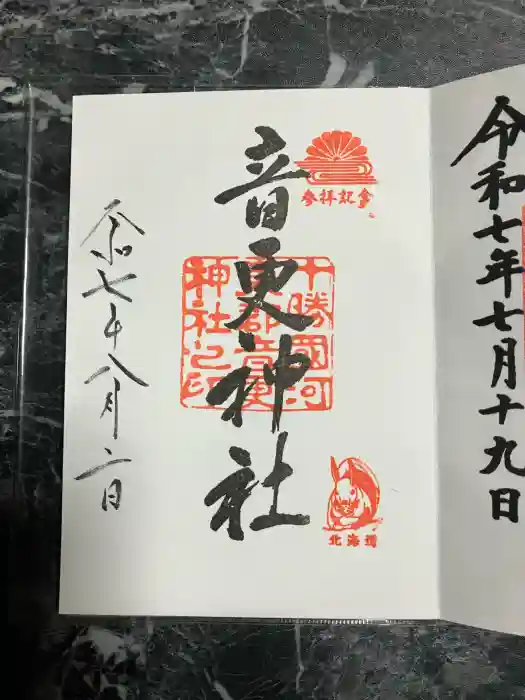 令和七年七月十九日
参拝記念
音更神社
十勝國河
東郡音更
神社之印
北海道
令和七年八月二日